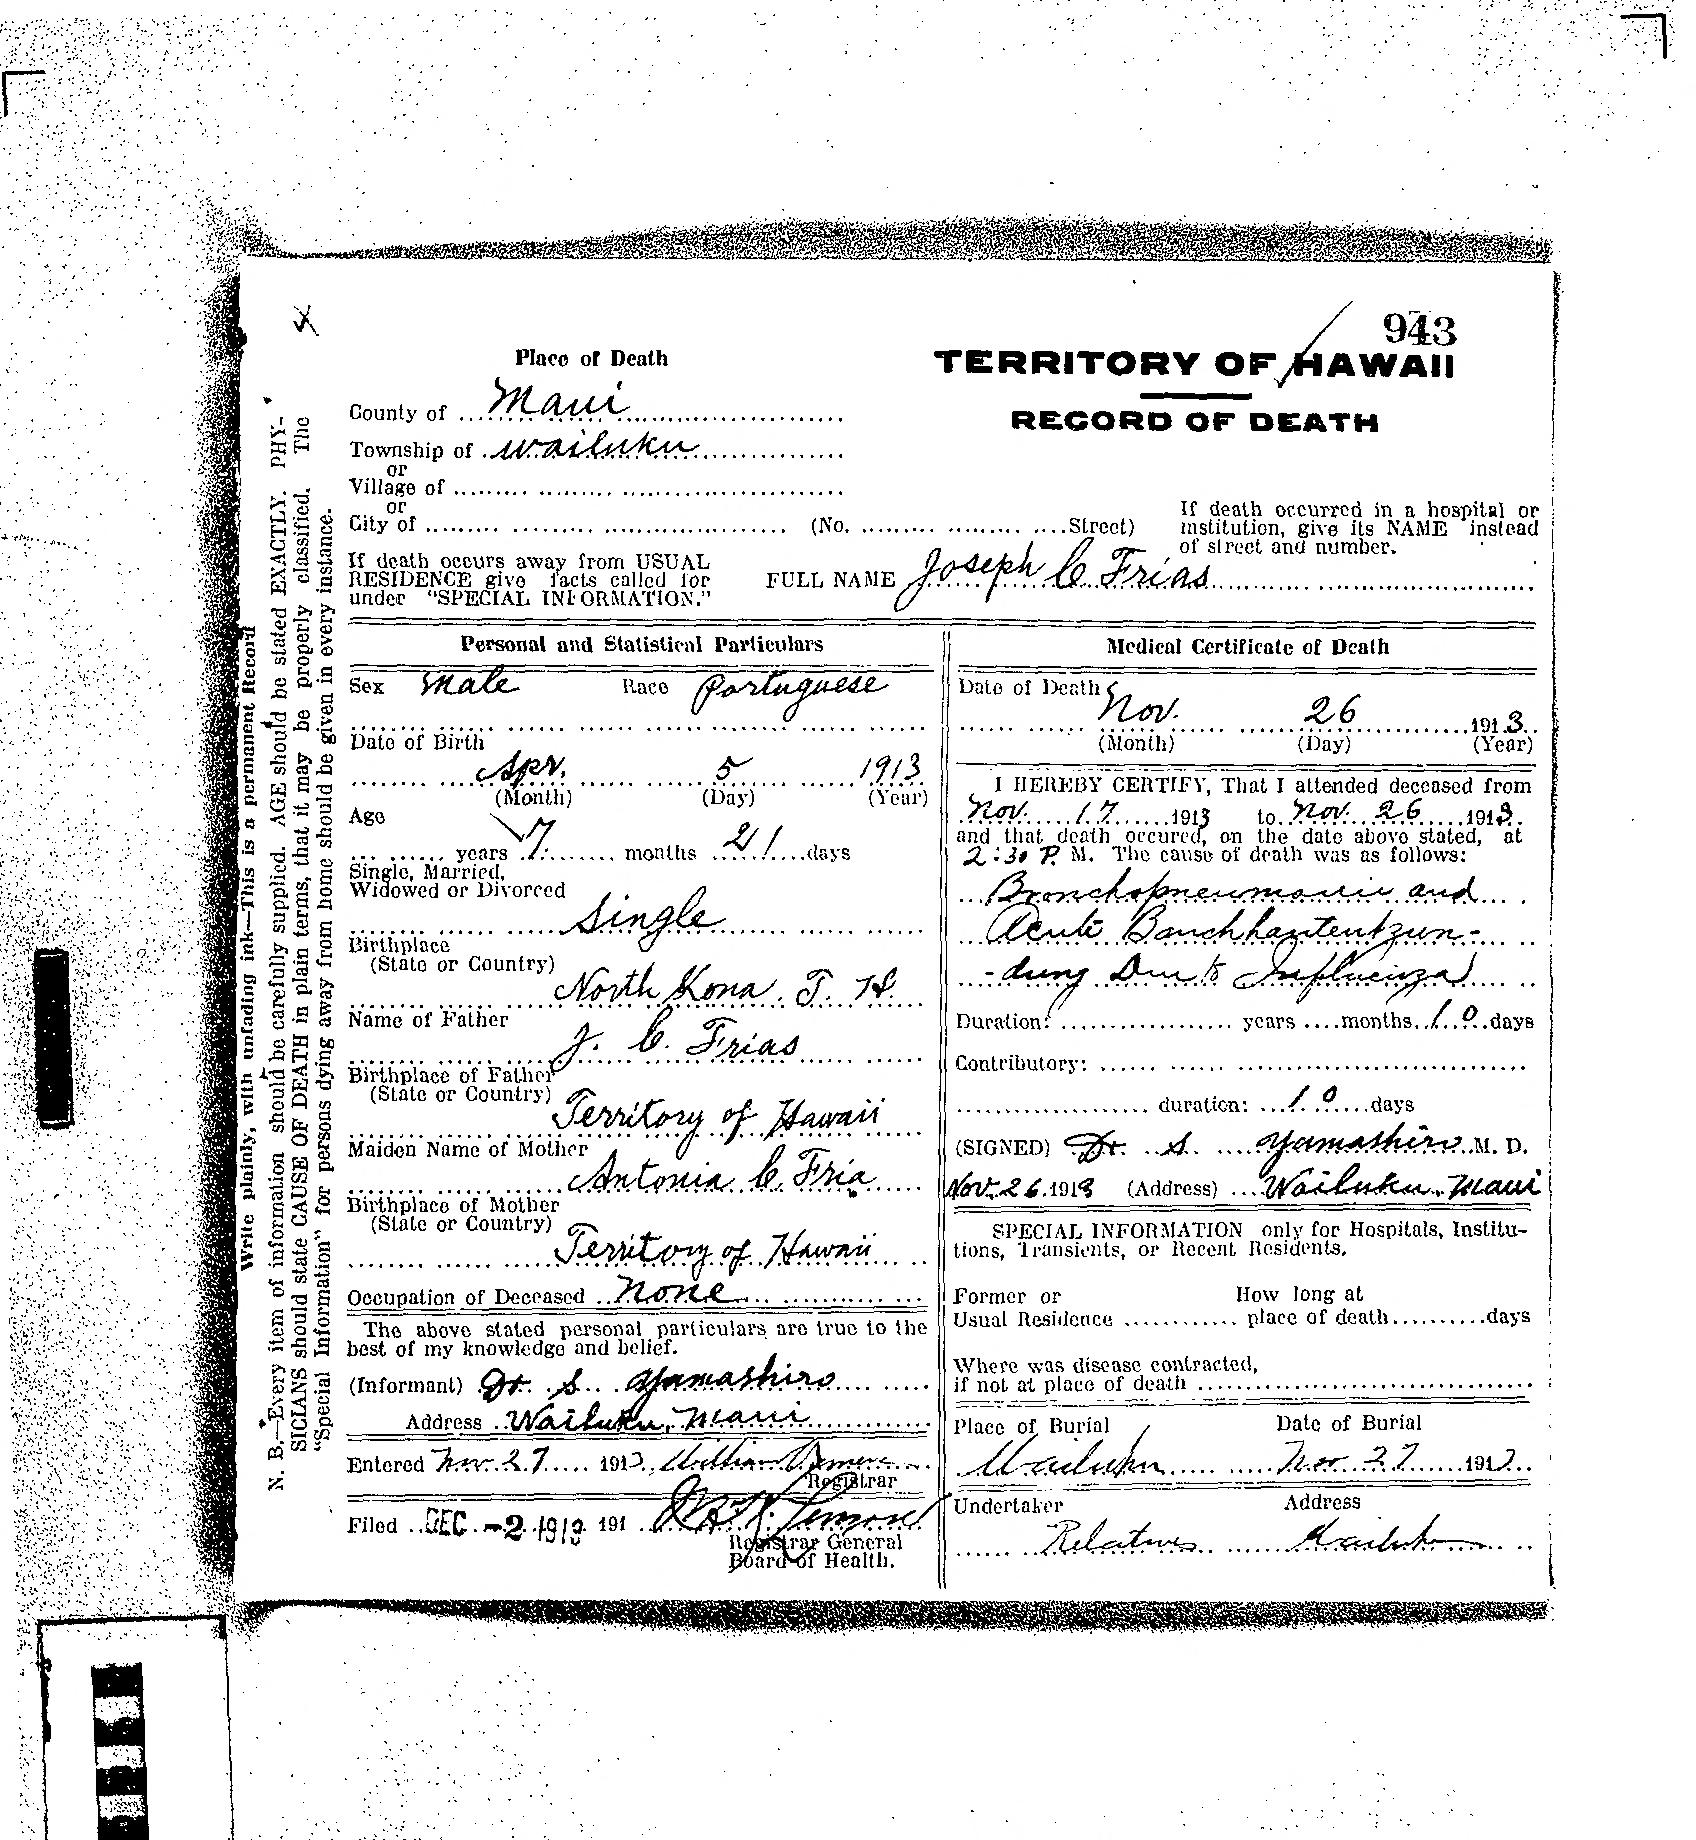 943
Place of Death
TERRITORY OF HAWAII
RECORD OF DEATH
County of Maui
Township of Wailuku
or
Village of
or
City of (No. Street)
If death occurred in a hospital or
institution, give its NAME instead
of street and number.
If death occurs away from USUAL
RESIDENCE give facts called for
under "SPECIAL INFORMATION."
FULL NAME Joseph C Frias
Write plainly, with unfading ink—This is a permanent Record
N. B.—Every item of information should be carefully supplied. AGE should be stated EXACTLY. PHY-
SICIANS should state CAUSE OF DEATH in plain terms, that it may be properly classified. The
"Special Information" for persons dying away from home should be given in every instance.
Personal and Statistical Particulars
Sex Male Race Portuguese
Date of Birth
Apr. 5 1913
(Month) (Day) (Year)
Age
years 7 months 21 days
Single, Married,
Widowed or Divorced
Single
Birthplace
(State or Country)
North Kona. T. H.
Name of Father
J. C. Frias
Birthplace of Father
(State or Country)
Territory of Hawaii
Maiden Name of Mother
Antonia C. Fria
Birthplace of Mother
(State or Country)
Territory of Hawaii
Occupation of Deceased None
The above stated personal particulars are true to the
best of my knowledge and belief.
(Informant) Dr. S. Yamashiro
Address Wailuku, Maui
Entered Nov. 27 1913 William
Registrar
Filed DEC -2 1913 191
Registrar General
Board of Health.
Medical Certificate of Death
Date of Death
Nov. 26 1913
(Month) (Day) (Year)
I HEREBY CERTIFY, That I attended deceased from
Nov. 17 1913 to Nov. 26 1913
and that death occured, on the date above stated, at
2:30 P. M. The cause of death was as follows:
Bronchopneumonie and
Acute
-dung Due to Influenza
Duration: years months 10 days
Contributory:
duration: 10 days
(SIGNED) Dr. S. Yamashiro M. D.
Nov. 26. 1913 (Address) Wailuku, Maui
SPECIAL INFORMATION only for Hospitals, Institu-
tions, Transients, or Recent Residents.
Former or How long at
Usual Residence place of death days
Where was disease contracted,
if not at place of death
Place of Burial Date of Burial
Wailuku Nov 27 1913
Undertaker Address
Relatives Wailuku